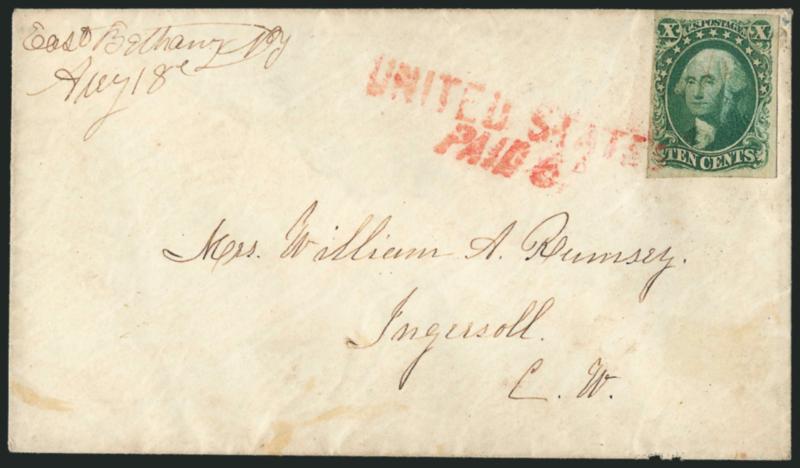 East Bethany NY
Aug 18
UNITED STATES
PAID 6
X U.S. POSTAGE X
TEN CENTS
Mrs. William A. Rumsey.
Ingersoll.
C. W.